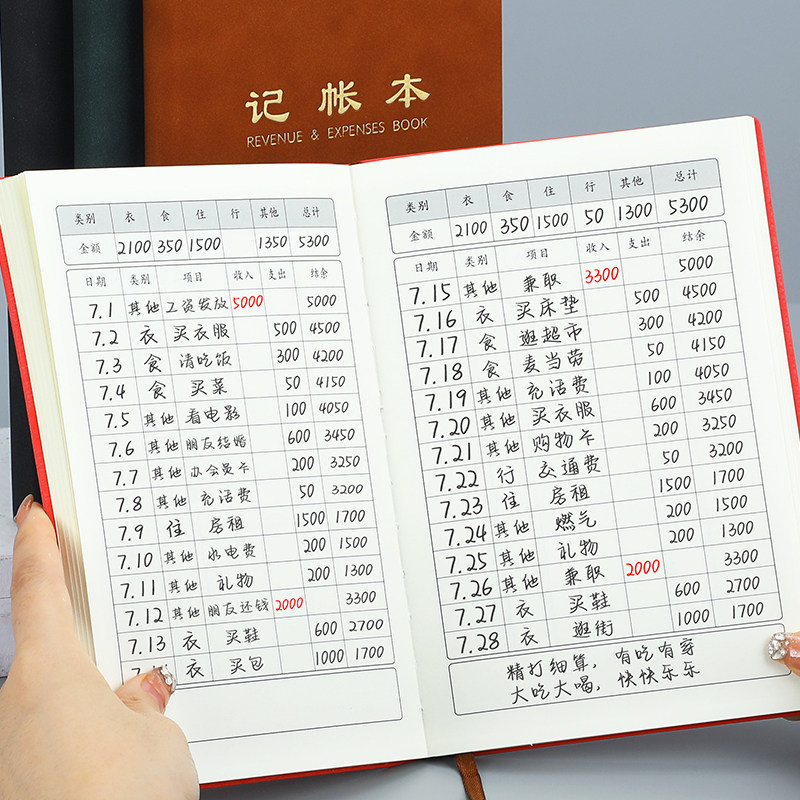 记帐本
REVENUE & EXPENSES BOOK
类别 衣 食 住 行 其他 总计
金额 2100 350 1500 1350 5300
日期 类别 项目 收入 支出 结余
7.1 其他 工资发放 5000 5000
7.2 衣 买衣服 500 4500
7.3 食 请吃饭 300 4200
7.4 食 买菜 50 4150
7.5 其他 看电影 100 4050
7.6 其他 朋友结婚 600 3450
7.7 其他 办会员卡 200 3250
7.8 其他 充话费 50 3200
7.9 住 房租 1500 1700
7.10 其他 水电费 200 1500
7.11 其他 礼物 200 1300
7.12 其他 朋友还钱 2000 3300
7.13 衣 买鞋 600 2700
衣 买包 1000 1700
类别 衣 食 住 行 其他 总计
金额 2100 350 1500 50 1300 5300
日期 类别 项目 收入 支出 结余
7.15 其他 兼职 3300 5000
7.16 衣 买床垫 500 4500
7.17 食 逛超市 300 4200
7.18 食 麦当劳 50 4150
7.19 其他 充话费 100 4050
7.20 其他 买衣服 600 3450
7.21 其他 购物卡 200 3250
7.22 行 交通费 50 3200
7.23 住 房租 1500 1700
7.24 其他 燃气 200 1500
7.25 其他 礼物 200 1300
7.26 其他 兼职 2000 3300
7.27 衣 买鞋 600 2700
7.28 衣 逛街 1000 1700
精打细算，有吃有穿
大吃大喝，快快乐乐